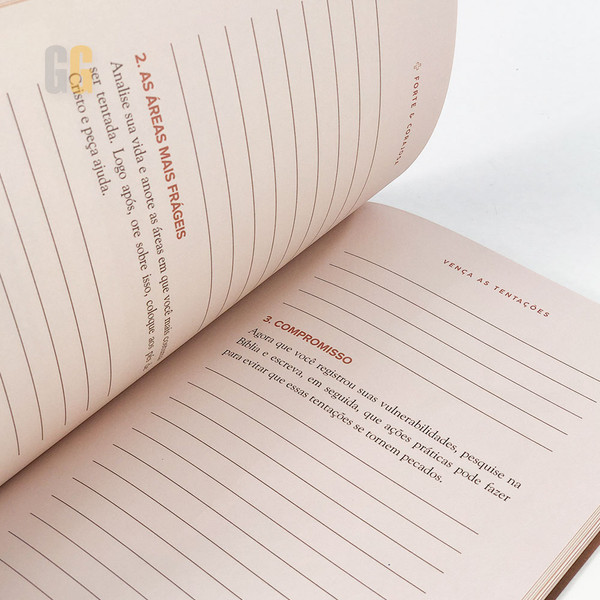 GG
FORTE & CORAJOSA
2. AS ÁREAS MAIS FRÁGEIS
Analise sua vida e anote as áreas em que você mais
ser tentada. Logo após, ore sobre isso, coloque aos pés de
Cristo e peça ajuda.
VENÇA AS TENTAÇÕES
3. COMPROMISSO
Agora que você registrou suas vulnerabilidades, pesquise na
Bíblia e escreva, em seguida, que ações práticas pode fazer
para evitar que essas tentações se tornem pecados.